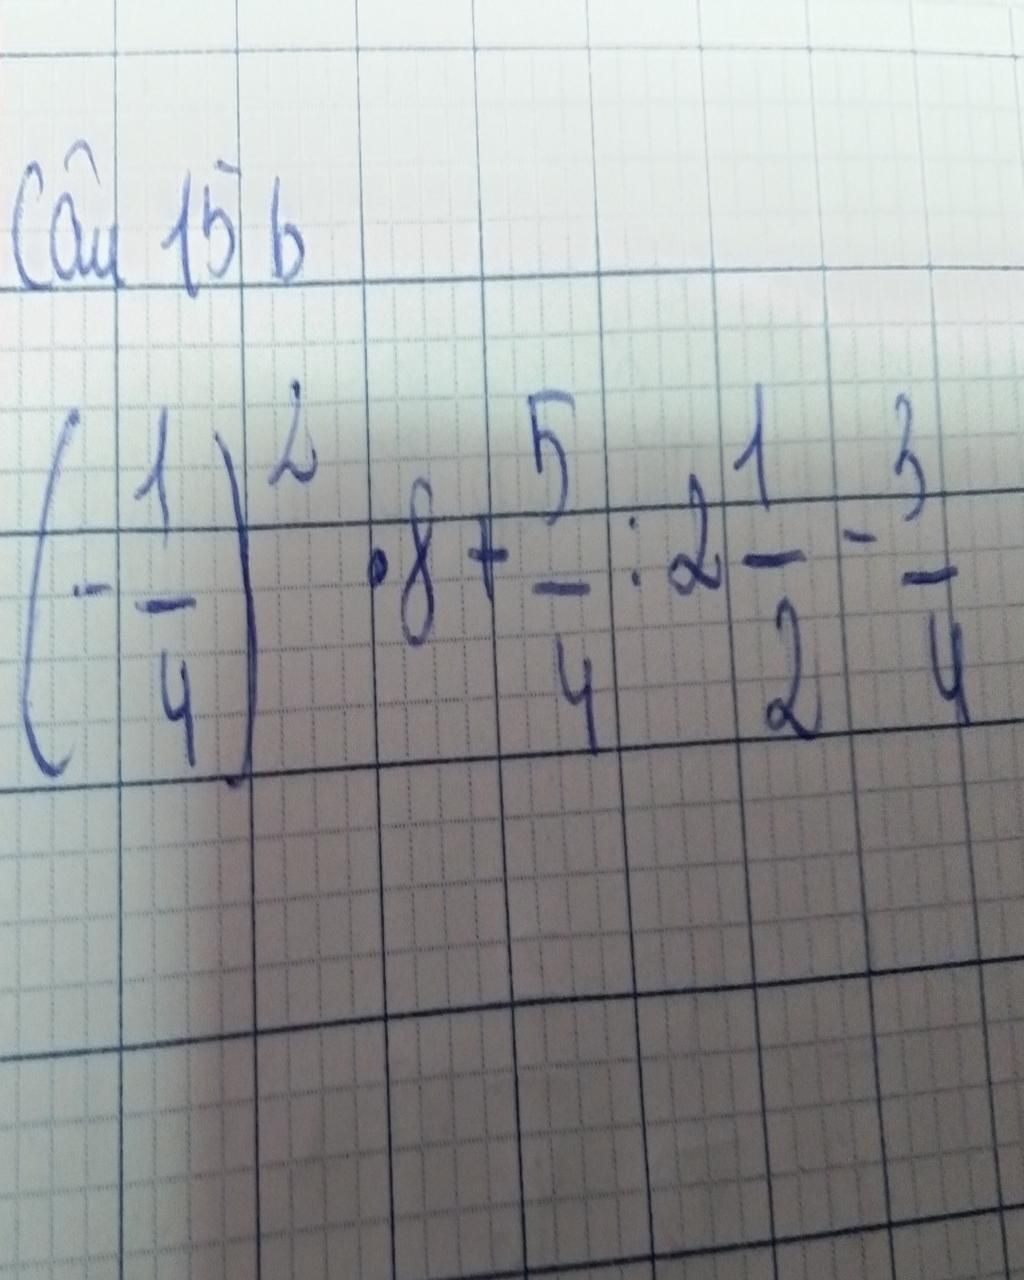 Câu 15 b
(- 1/4)² . 8 + 5/4 : 2 1/2 - 3/4